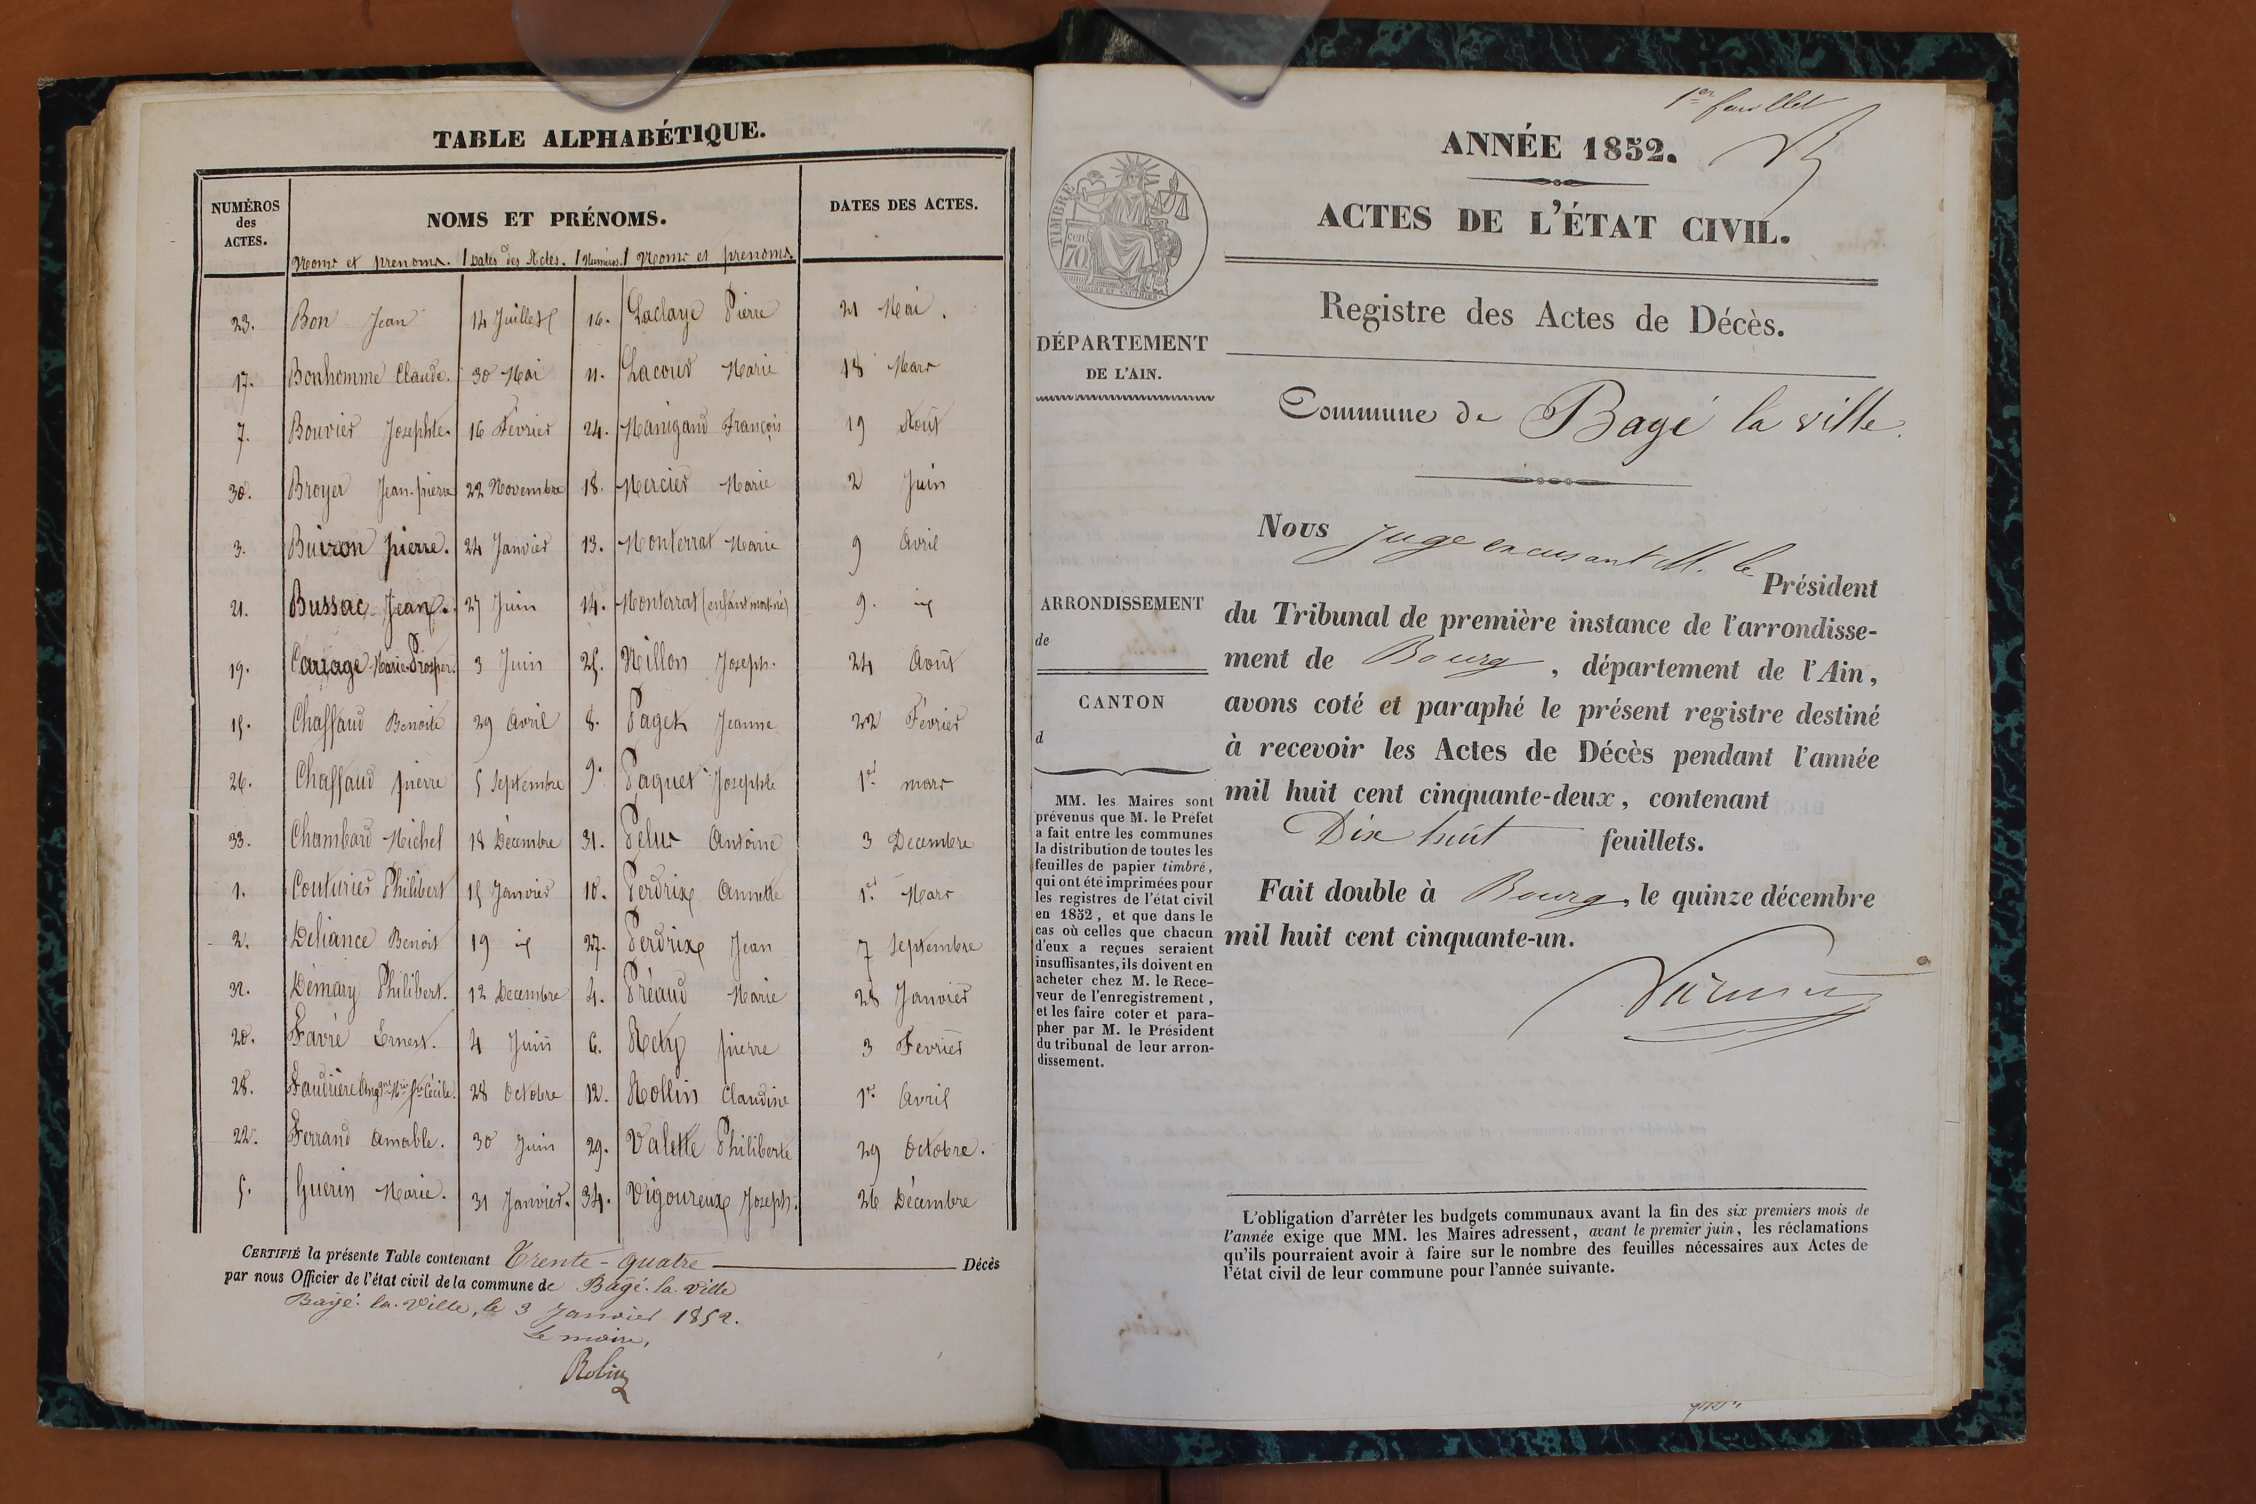 TABLE ALPHABÉTIQUE.
NUMÉROS des ACTES. NOMS ET PRÉNOMS. DATES DES ACTES.
Noms et prenoms. Dates des Actes. Numéros. Noms et prenoms.
23. Bon Jean 14 Juillet 16. Laclaye Pierre 21 Mai.
17. Bonhomme Claude. 30 Mai 11. Lacour Marie 18 Mars
7. Bouvier Josephte. 16 Février 24. Manigand François 19 Août
30. Broyer Jean-pierre 22 Novembre 18. Mercier Marie 2 Juin
3. Buiron pierre. 24 Janvier 13. Monterrat Marie 9 Avril
21. Bussac Jean. 27 Juin 14. Monterrat (enfant mort-né) 9. id
19. Carjage Marie-Prosper. 3 Juin 25. Nillon Joseph. 24 Août
15. Chaffaud Benoite 29 Avril 8. Paget Jeanne 22 Février
26. Chaffaud pierre 5 Septembre 9. Paquet Josephte 1er mars
33. Chambard Michel 18 Décembre 31. Pelus Antoine 3 Decembre
1. Couturier Philibert 15 Janvier 10. Perdrix Annette 1er Mars
2. Deliance Benoit 19 id 27. Perdrix Jean 7 Septembre
32. Démary Philibert. 12 Decembre 4. Préaud Marie 28 Janvier
20. Favre Ernest. 4 Juin 6. Rety pierre 3 Fevrier
28. Faudière Cécile. 28 Octobre 12. Rollin Claudine 1er Avril
22. Ferrand Amable. 30 Juin 29. Valette Philiberte 29 Octobre.
5. Guerin Marie. 31 Janvier. 34. Vigoureux Joseph. 26 Décembre
CERTIFIÉ la présente Table contenant Trente-quatre Décès
par nous Officier de l'état civil de la commune de Bagé-la-Ville
Bagé-la-Ville, le 3 Janvier 1852.
Le maire,
Robin
1er feuillet
ANNÉE 1852.
ACTES DE L'ÉTAT CIVIL.
TIMBRE
70 cen.
Registre des Actes de Décès.
DÉPARTEMENT
DE L'AIN.
Commune de Bagé la ville.
ARRONDISSEMENT
de
CANTON
d
MM. les Maires sont
prévenus que M. le Préfet
a fait entre les communes
la distribution de toutes les
feuilles de papier timbré,
qui ont été imprimées pour
les registres de l'état civil
en 1852, et que dans le
cas où celles que chacun
d'eux a reçues seraient
insuffisantes, ils doivent en
acheter chez M. le Rece-
veur de l'enregistrement,
et les faire coter et para-
pher par M. le Président
du tribunal de leur arron-
dissement.
Nous juge excusant M. le Président
du Tribunal de première instance de l'arrondisse-
ment de Bourg, département de l'Ain,
avons coté et paraphé le présent registre destiné
à recevoir les Actes de Décès pendant l'année
mil huit cent cinquante-deux, contenant
Dix huit feuillets.
Fait double à Bourg, le quinze décembre
mil huit cent cinquante-un.
L'obligation d'arrêter les budgets communaux avant la fin des six premiers mois de
l'année exige que MM. les Maires adressent, avant le premier juin, les réclamations
qu'ils pourraient avoir à faire sur le nombre des feuilles nécessaires aux Actes de
l'état civil de leur commune pour l'année suivante.